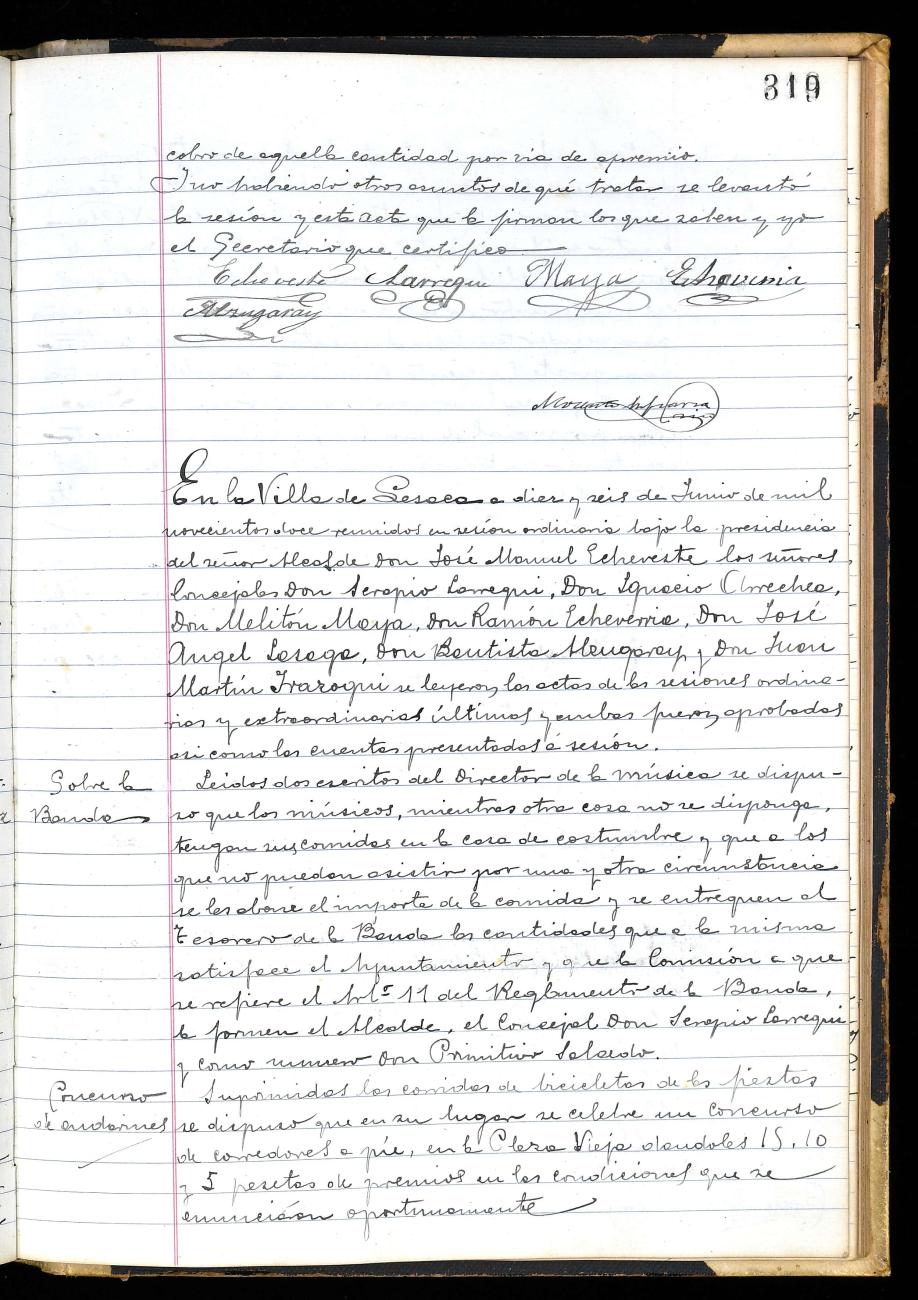 319
cobro de aquella cantidad por via de apremio.
Y no habiendo otros asuntos de qué tratar se levantó
la sesión y esta acta que la firman los que saben y yo
el Secretario que certifico
Echeveste Larregui Maya Echeverria
Alzugaray
En la Villa de Lesaca a diez y seis de Junio de mil
novecientos doce reunidos en sesión ordinaria bajo la presidencia
del señor Alcalde Don José Manuel Echeveste los señores
Concejales Don Serapio Larregui, Don Ignacio Arrechea,
Don Melitón Maya, Don Ramón Echeverria, Don José
Angel Lasaga, Don Bautista Alzugaray y Don Juan
Martín Irazoqui se leyeron las actas de las sesiones ordina-
rias y extraordinarias últimas y ambas fueron aprobadas
asi como las cuentas presentadas a sesión.
Sobre la
Banda
Leidos dos escritos del Director de la música se dispu-
so que los músicos, mientras otra cosa no se disponga,
tengan sus comidas en la casa de costumbre y que a los
que no puedan asistir por una y otra circunstancia
se les abone el importe de la comida y se entreguen al
Tesorero de la Banda las cantidades que a la misma
satisface el Ayuntamiento y que la Comisión a que
se refiere el Artº 11 del Reglamento de la Banda,
la formen el Alcalde, el Concejal Don Serapio Larregui
y como numero Don Primitivo Salcedo.
Concurso
de andarines
Suprimidas las corridas de bicicletas de las fiestas
se dispuso que en su lugar se celebre un concurso
de corredores a pie, en la Plaza Vieja dandoles 15, 10
y 5 pesetas de premios en las condiciones que se
enunciarán oportunamente